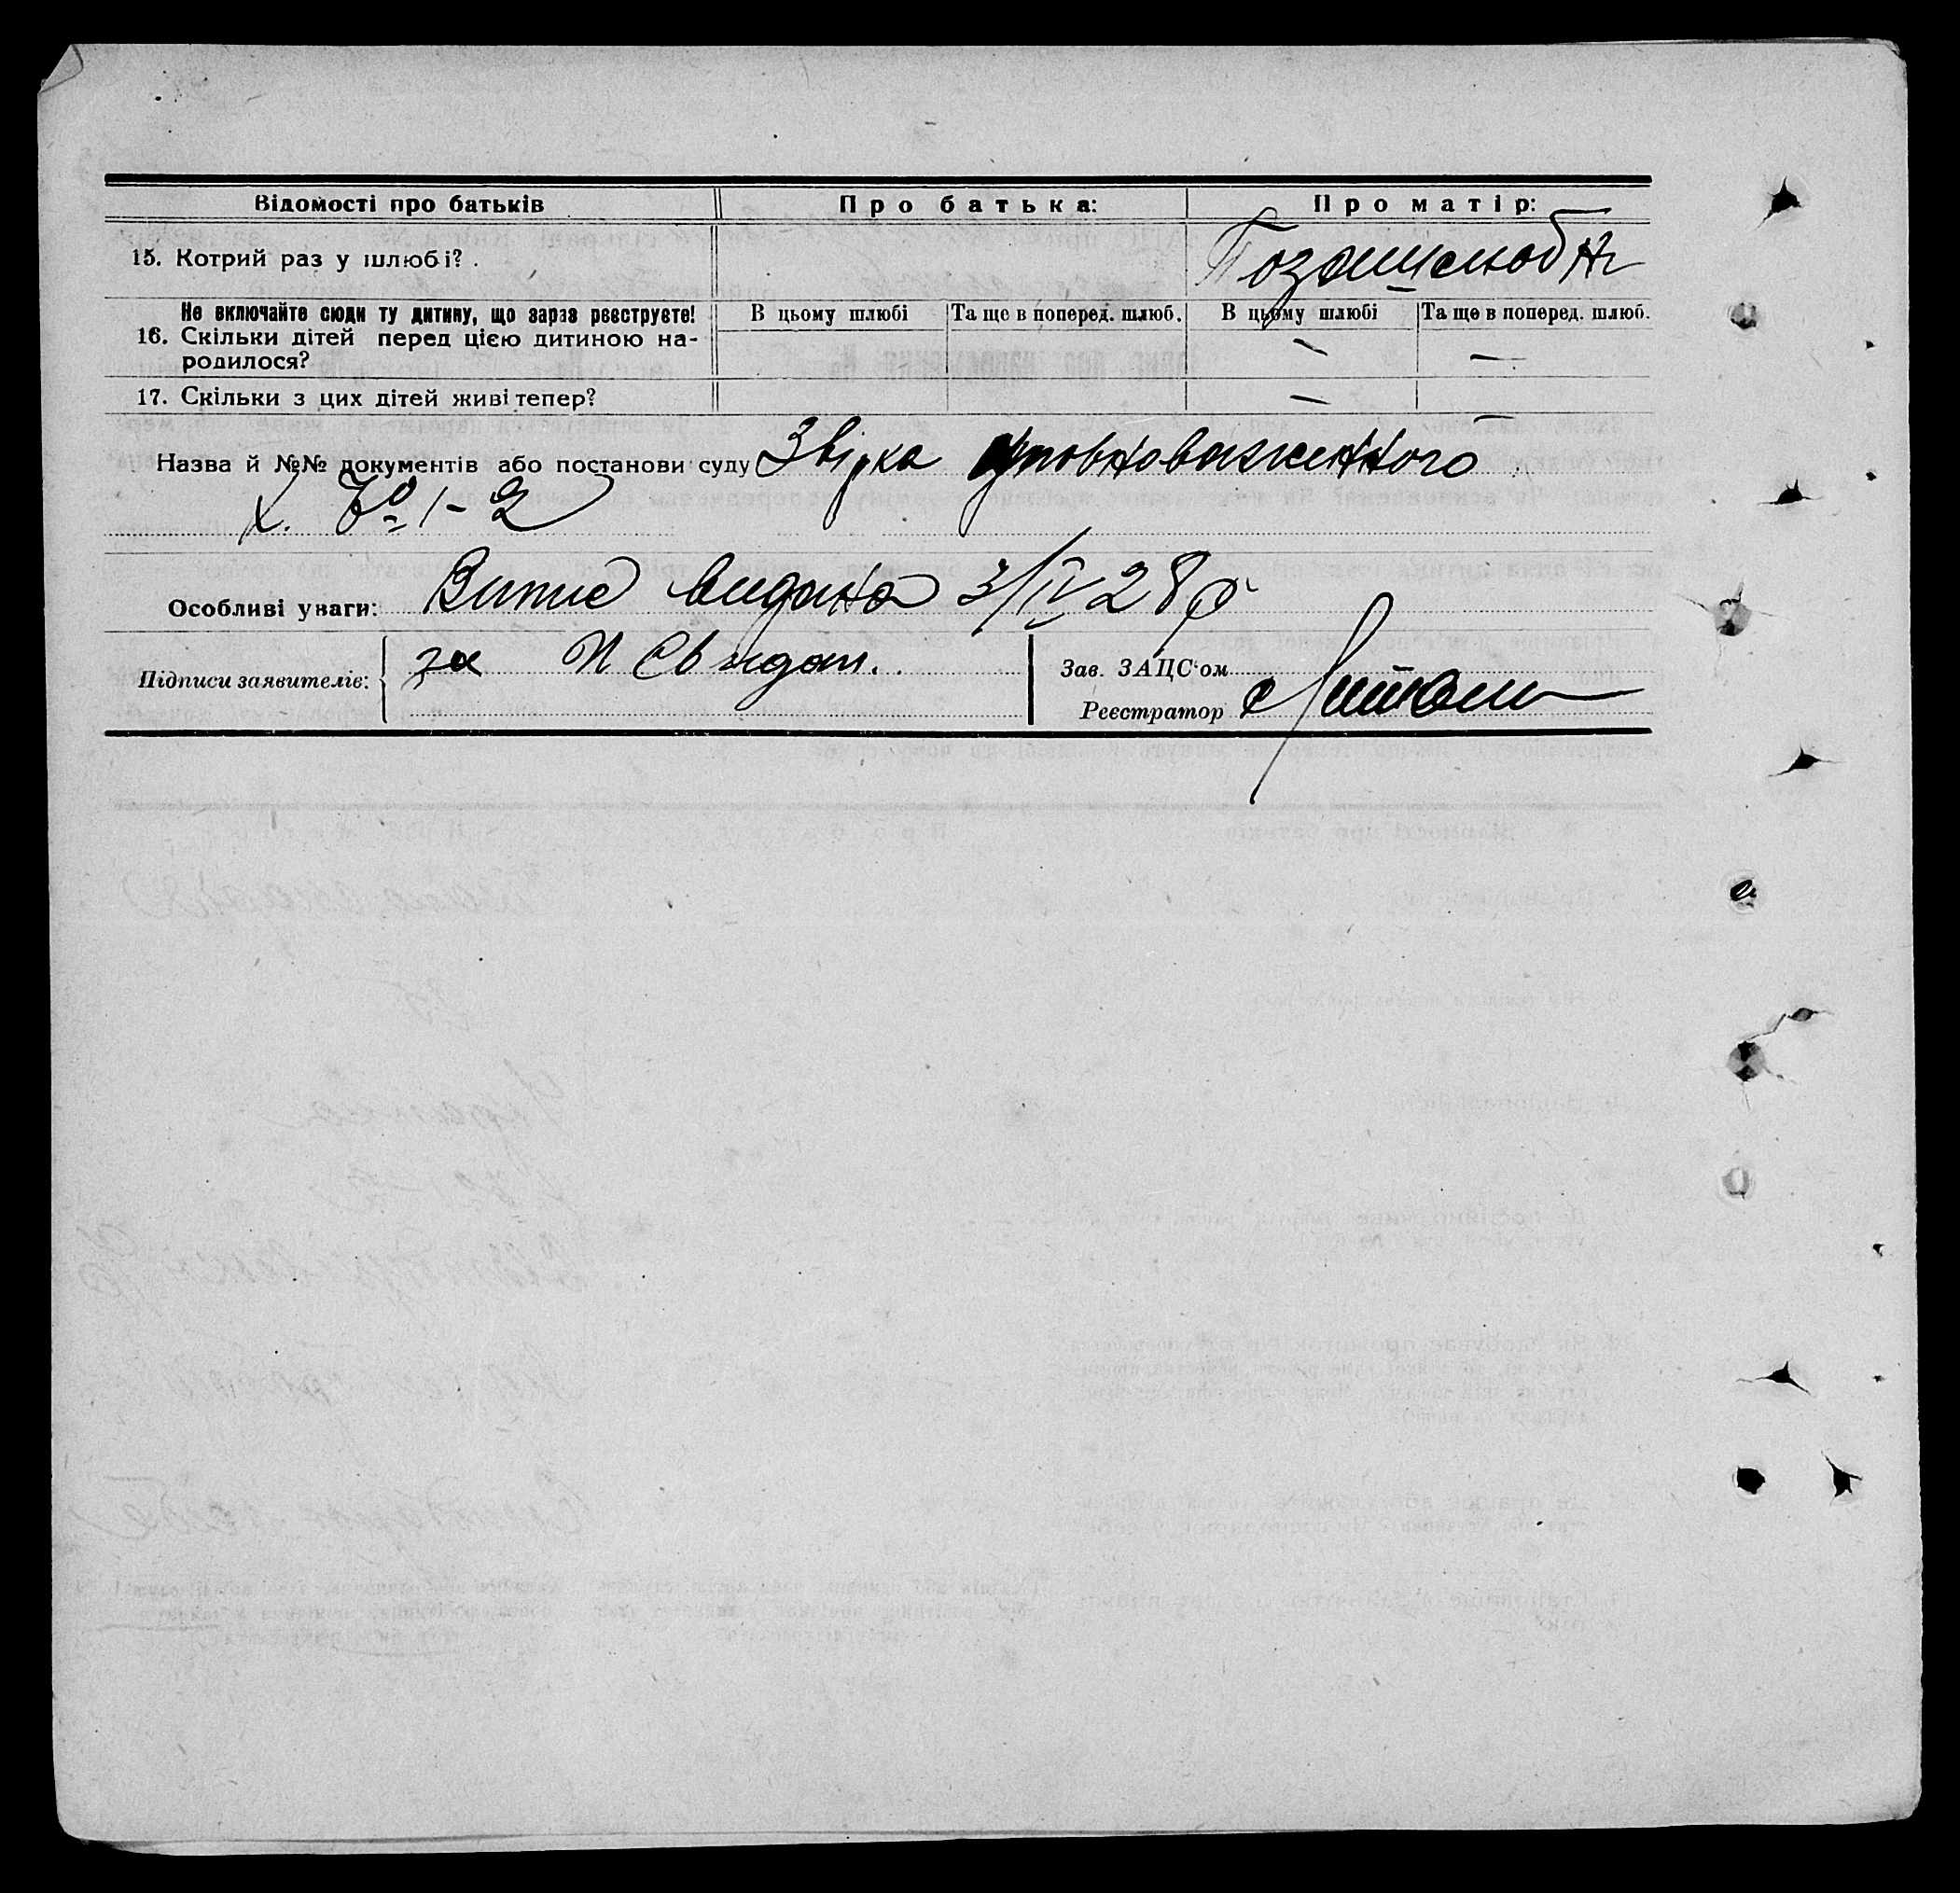 Відомості про батьків Про батька: Про матір:
15. Котрий раз у шлюбі? Позашлюбн
Не включайте сюди ту дитину, що зараз реєструєте!
В цьому шлюбі Та ще в поперед. шлюб. В цьому шлюбі Та ще в поперед. шлюб.
16. Скільки дітей перед цією дитиною на-
родилося? — —
17. Скільки з цих дітей живі тепер? —
Назва й №№ документів або постанови суду Звірка уповноваженного
1-2
Особливі уваги: Витис видано 3/IV 28 р
Підписи заявителів: за Зав. ЗАЦС'ом
Реєстратор